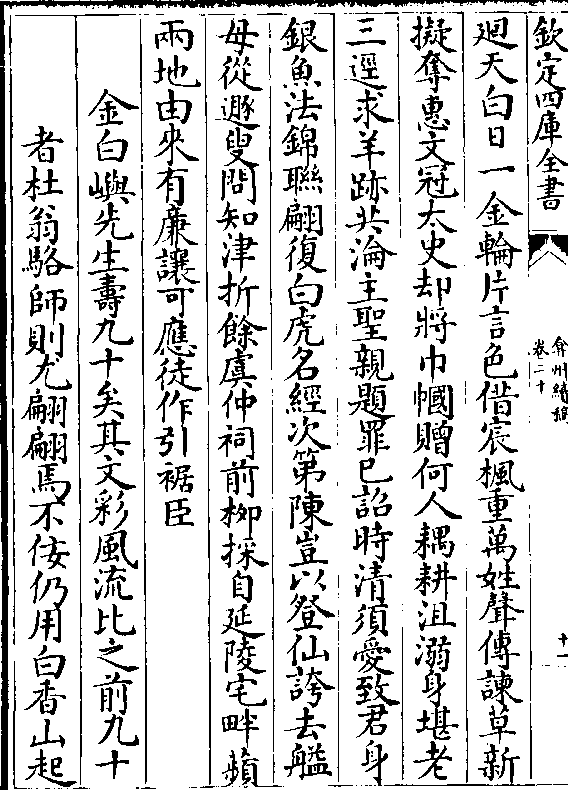 欽定四庫全書
弇州續稿
卷二十
十一
廻天白日一金輪片言色借宸楓重萬姓聲傳諫草新
擬奪惠文冠太史却將巾幗贈何人耦耕沮溺身堪老
三逕求羊跡共淪主聖親題罪已詔時清須愛致君身
銀魚法錦聯翩復白虎名經次第陳豈以登仙誇去艦
母從遯叟問知津折餘虞仲祠前柳採自延陵宅畔蘋
兩地由來有廉讓可應徒作引裾臣
金白嶼先生壽九十矣其文彩風流比之前九十
者杜翁駱師則尤翩翩焉不佞仍用白香山起